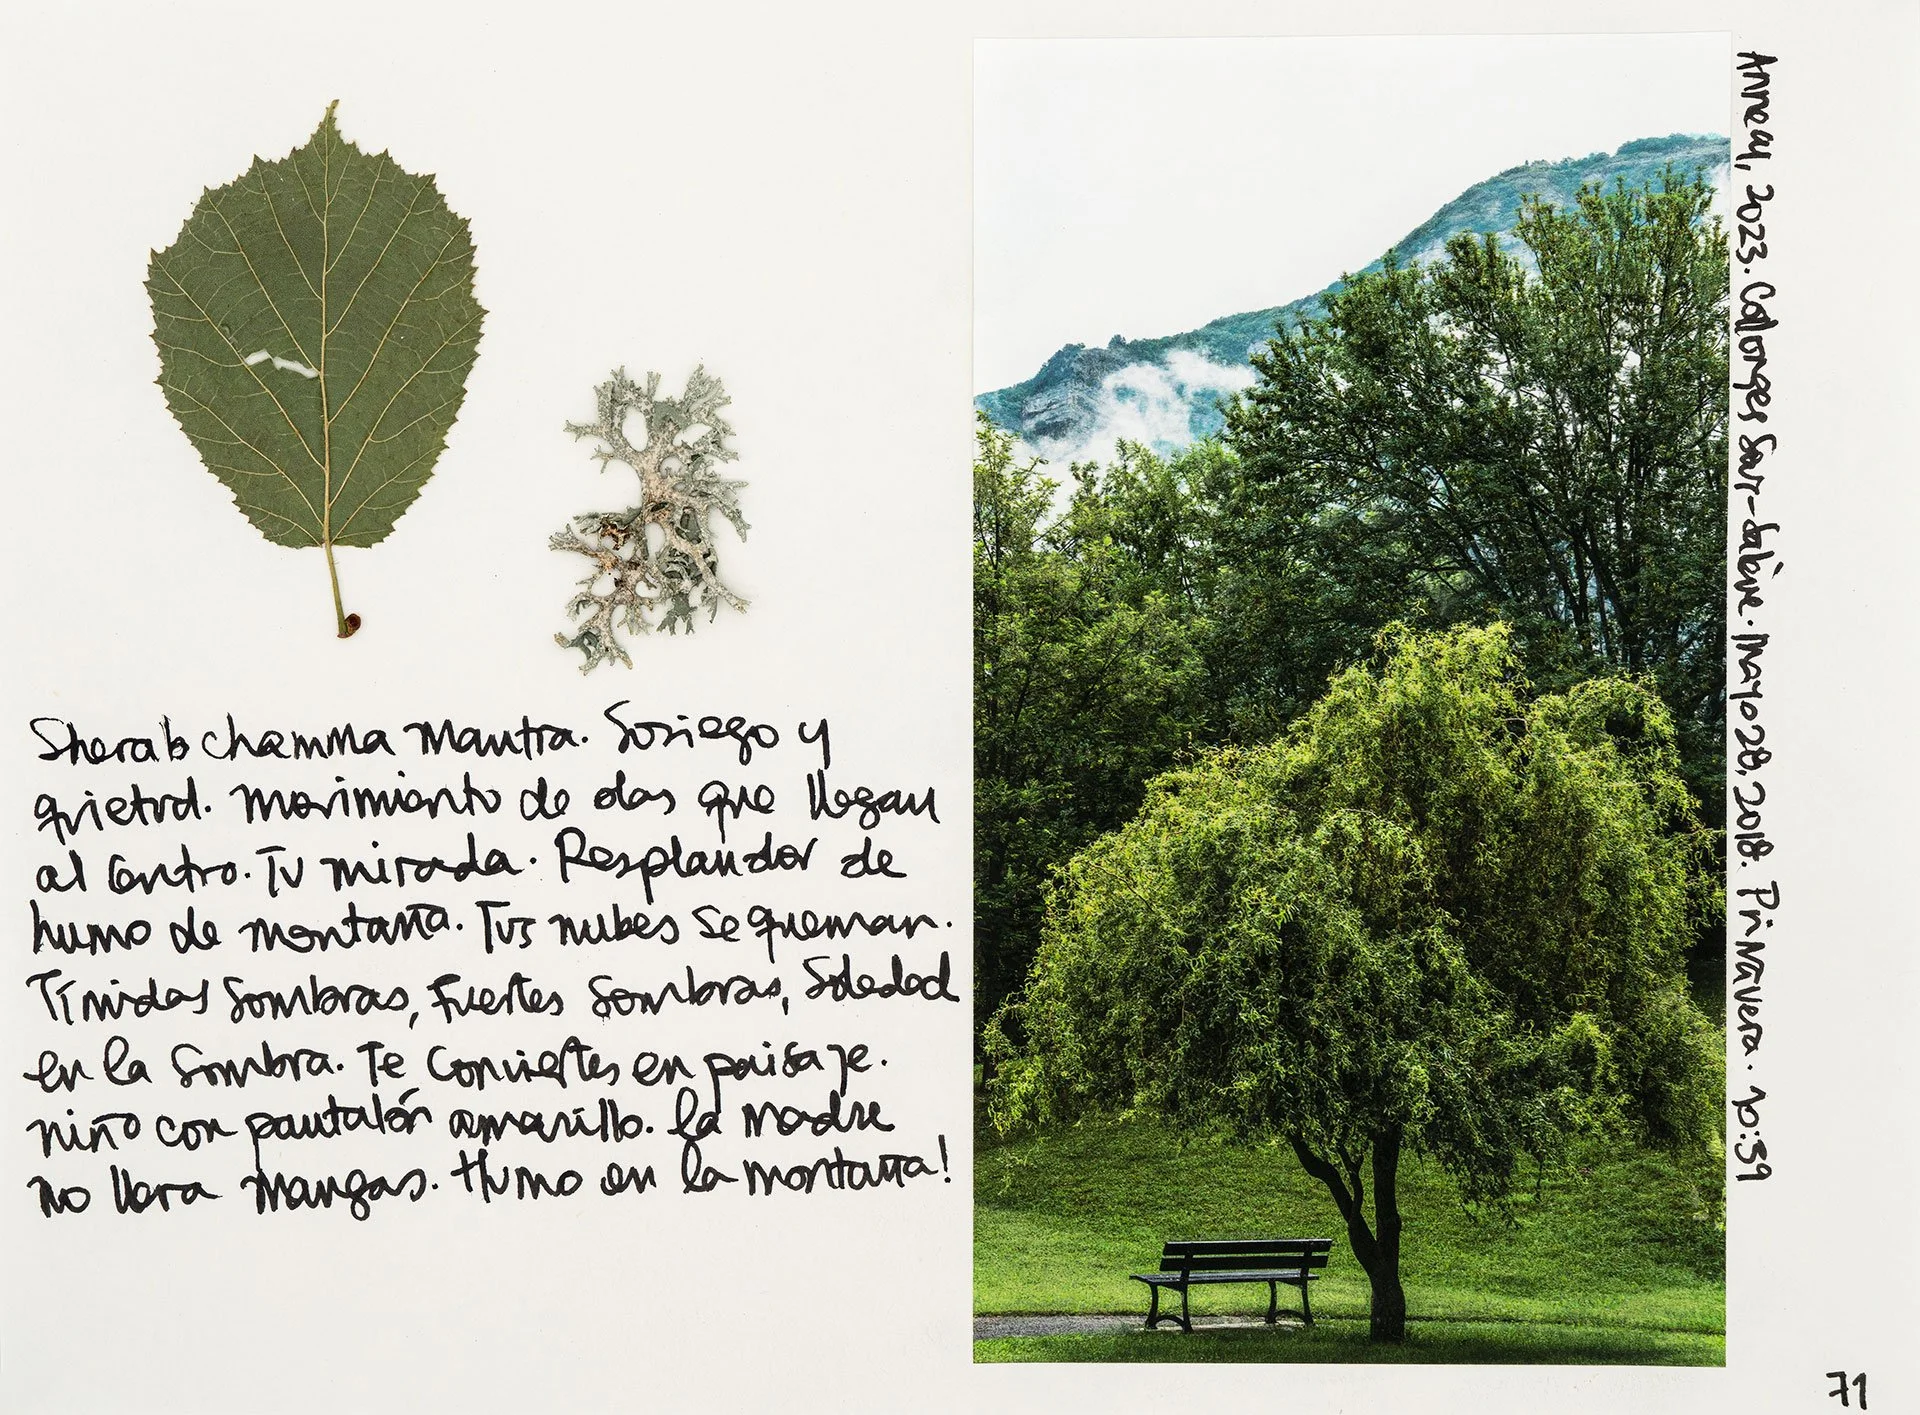 Sherab chamma Mantra. Sosiego y
quietud. movimiento de olas que llegan
al centro. Tu mirada. Resplandor de
humo de montaña. Tus nubes se queman.
Tímidas Sombras, fuertes Sombras, Soledad
en la Sombra. Te conviertes en paisaje.
niño con pantalón amarillo. la madre
no lleva mangas. Humo en la montaña!
Annecy, 2023. Collonges Sour-Salève. Mayo 28. 2018. Primavera. 10:59
71